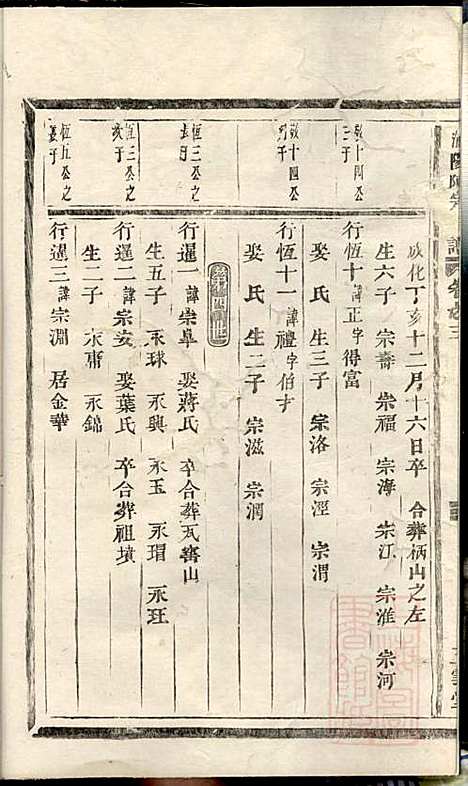 陳宗譜 卷之三
成化丁亥十二月十六日卒 合葬柄山之左
生六子 宗壽 宗福 宗海 宗江 宗淮 宗河
敦十四公之三子
行恆十 諱正字得富
娶 氏 生三子 宗洛 宗涇 宗渭
敦十四公
行恆十一 諱 字伯才
娶 氏 生二子 宗滋 宗潤
恒三公之長子
行暹一 諱宗皐 娶蔣氏 卒合葬瓦窰山
生五子 永球 永興 永玉 永瑁 永玨
恒三公之次子
行暹二 諱宗安 娶葉氏 卒合葬祖墳
生二子 永庸 永錦
恆五公之長子
行暹三 諱宗淵 居金華